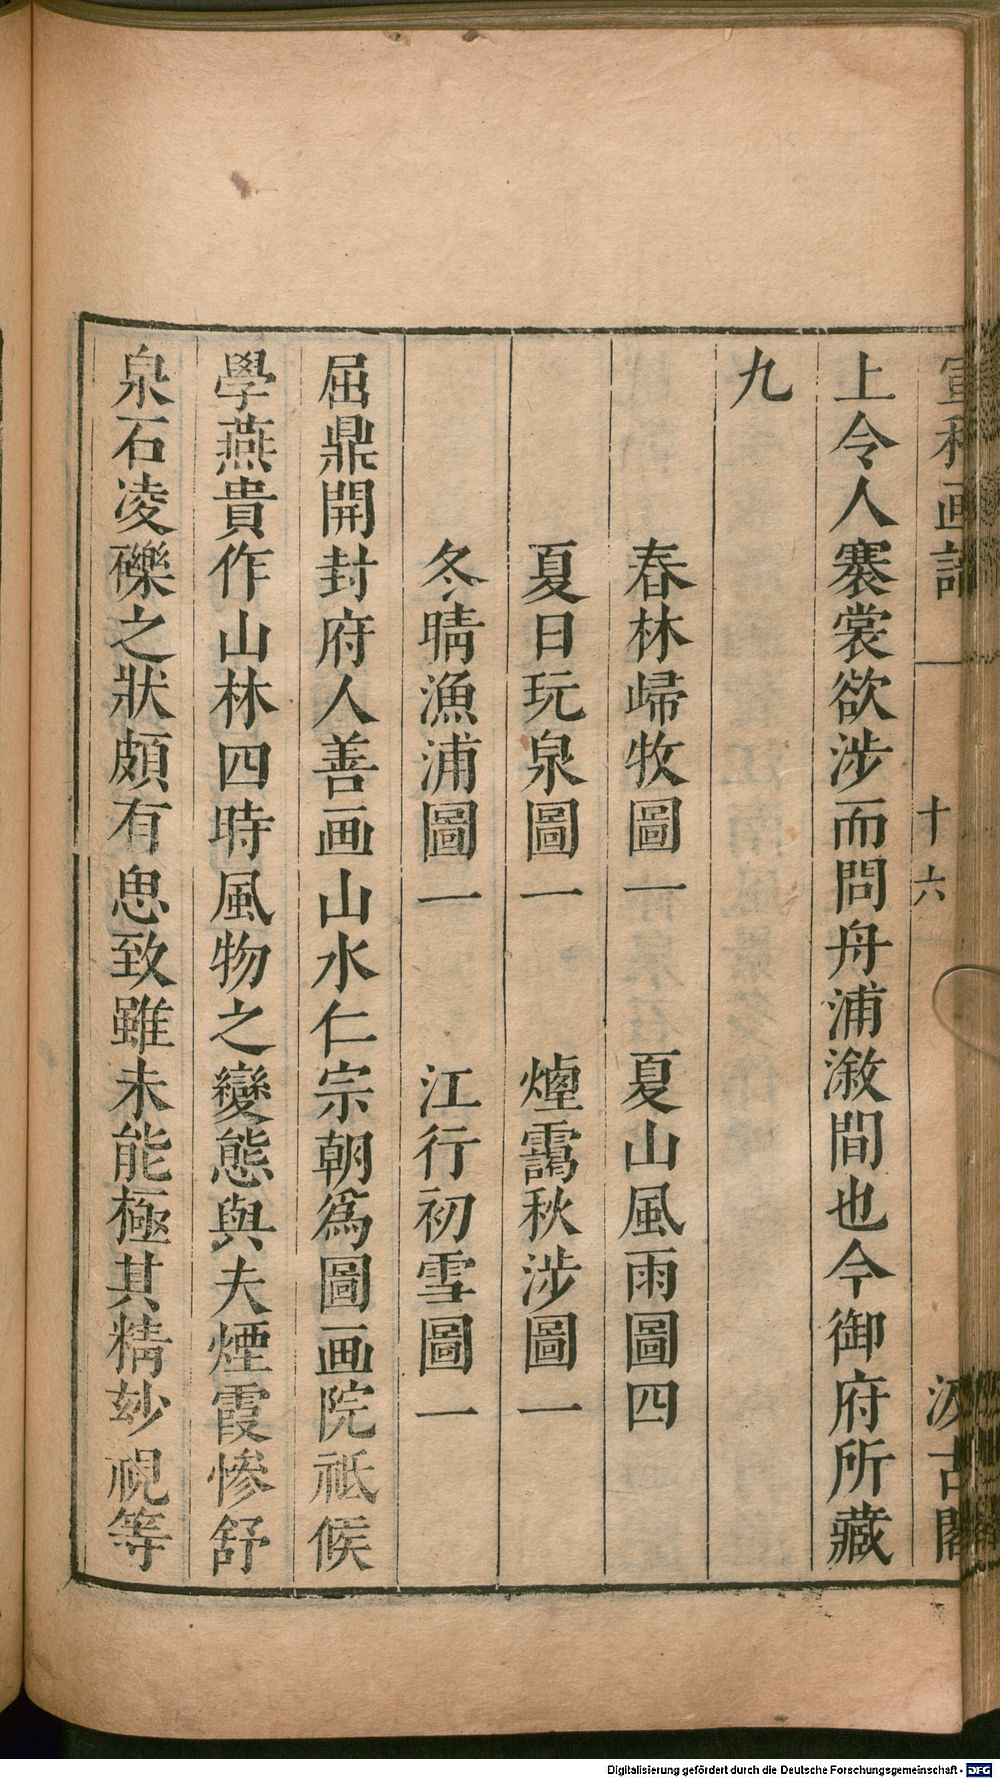 宣和画譜 十六 汲古閣
上令人褰裳欲涉而問舟浦漵間也今御府所藏
九
春林歸牧圖一 夏山風雨圖四
夏日玩泉圖一 煙靄秋涉圖一
冬晴漁浦圖一 江行初雪圖一
屈鼎開封府人善画山水仁宗朝爲圖画院祗候
學燕貴作山林四時風物之變態與夫煙霞慘舒
泉石凌礫之狀頗有思致雖未能極其精玅視等
Digitalisierung gefördert durch die Deutsche Forschungsgemeinschaft - DFG